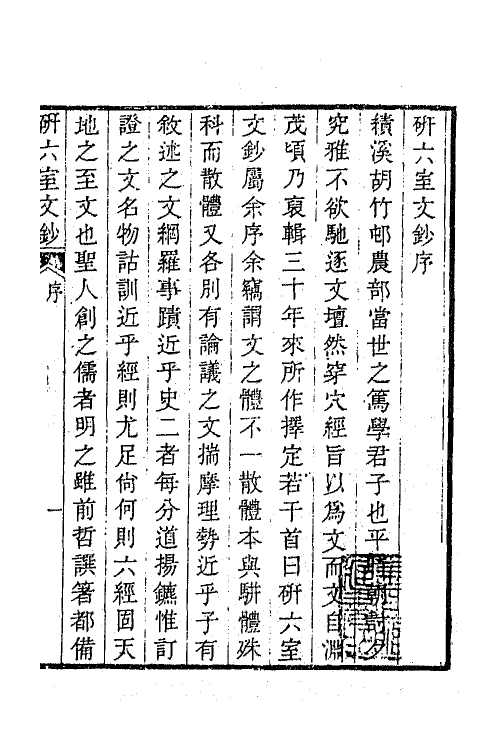 硏六室文鈔序
績溪胡竹邨農部當世之篤學君子也平
究雅不欲馳逐文壇然穿穴經旨以爲文而文自淵
茂頃乃裒輯三十年來所作擇定若干首曰硏六室
文鈔屬余序余竊謂文之體不一散體本與駢體殊
科而散體又各別有論議之文揣摩理勢近乎子有
敘述之文網羅事蹟近乎史二者每分道揚鑣惟訂
證之文名物詁訓近乎經則尤足尙何則六經固天
地之至文也聖人創之儒者明之雖前哲譔箸都備
硏六室文鈔
序
一